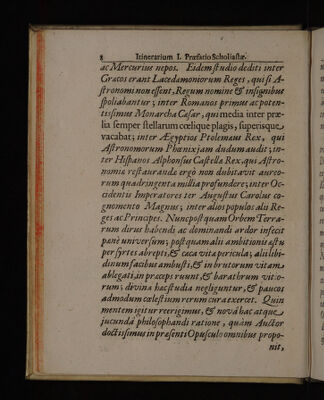 8 Itinerarium I. Præfatio Scholiastæ.
ac Mercurius nepos. Eidem studio dediti inter
Græcos erant Lacedæmoniorum Reges, qui si A-
stronomi non essent, Regum nomine & insignibus
spoliabantur; inter Romanos primus ac poten-
tissimus Monarcha Cæsar, qui media inter præ-
lia semper stellarum cœlique plagis, superisque
vacabat; inter Ægyptios Ptolemæus Rex, qui
Astronomorum Phœnix jam dudum audit; in-
ter Hispanos Alphonsus Castellæ Rex, qui Astro-
nomiæ restaurandæ ergò non dubitavit aureo-
rum quadringenta millia profundere; inter Oc-
cidentis Imperatores ter Augustus Carolus co-
gnomento Magnus; inter alios populos alii Re-
ges ac Principes. Nunc postquam Orbem Terra-
rum dirus habendi ac dominandi ardor infecit
pænè universum; postquam alii ambitionis æstu
per syrtes abrepti, & cæca vitæ pericula; alii libi-
dinum facibus ambusti, & in brutorum vitam
ablegati, in præceps ruunt, & barathrum vitio-
rum; divina hæc studia negliguntur, & paucos
admodum cœlestium rerum cura exercet. Quin
mentem igitur reerigimus, & novâ hac atque
jucundâ philosophandi ratione, quam Auctor
doctissimus in præsenti Opusculo omnibus propo-
nit,